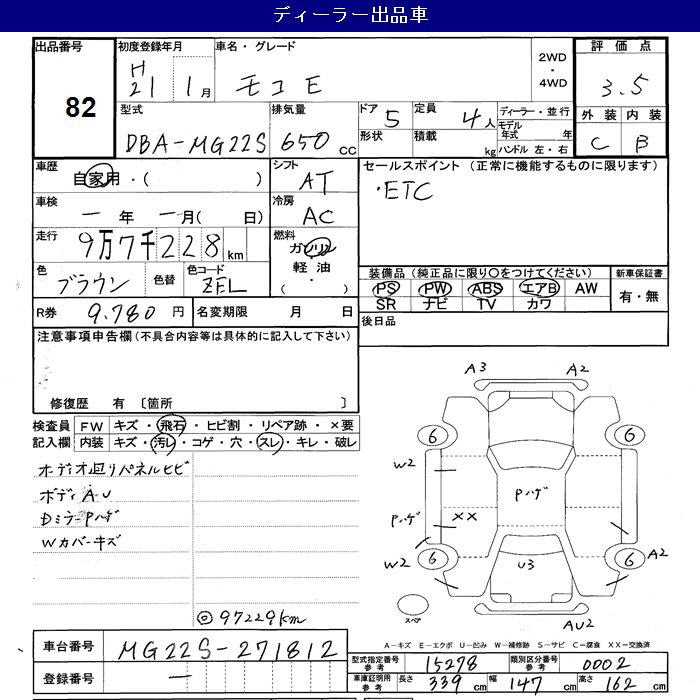 ディーラー出品車
出品番号
82
初度登録年月
H21 1月
車名・グレード
モコ E
2WD・4WD
評価点
3.5
外装 内装
C B
型式
DBA-MG22S
排気量
650 cc
ドア 5
形状
定員 4人
積載 kg
ディーラー・並行
モデル年式 年
ハンドル 左・右
車歴
自家用・( )
シフト
AT
車検
一 年 一 月( 日)
冷房
AC
走行
9万7千228km
燃料
ガソリン
軽油・( )
色
ブラウン
色替
色コード
ZEL
R券 9.780 円
名変期限 月 日
セールスポイント (正常に機能するものに限ります)
・ETC
装備品(純正品に限り〇をつけてください)
PS PW ABS エアB AW
SR ナビ TV カワ
新車保証書
有・無
後日品
注意事項申告欄(不具合内容等は具体的に記入して下さい)
修復歴 有 〔箇所 〕
検査員記入欄
FW キズ・飛石・ヒビ割・リペア跡・×要
内装 キズ・汚レ・コゲ・穴・スレ・キレ・破レ
オーデオ廻リパネルヒビ
ボディAU
Dミラーpハゲ
Wカバーキズ
◎97229km
A3 A2
6 6
W2
Pハゲ
Pハゲ XX
W2 6 6 A2
U3
スペア
AU2
A-キズ E-エクボ U-凹み W-補修跡 S-サビ C-腐食 XX-交換済
車台番号 MG22S-271812
登録番号 一
型式指定番号 参考 15278
類別区分番号 参考 0002
車庫証明用 参考 長さ 339 cm 幅 147 cm 高さ 162 cm